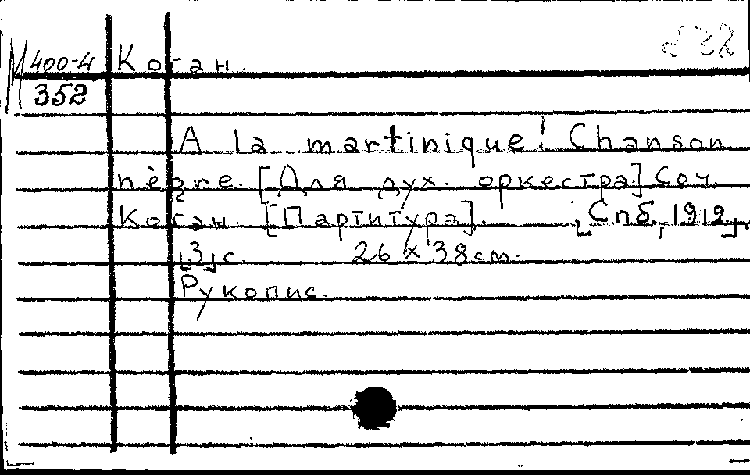 М 400-4 Коган.
352
A la martinique! Chanson
nègre. [Для дух. оркестра] Соч.
Коган. [Партитура]. [Спб, 1912]
[3] с. 26 х 38 cm.
Рукопис.